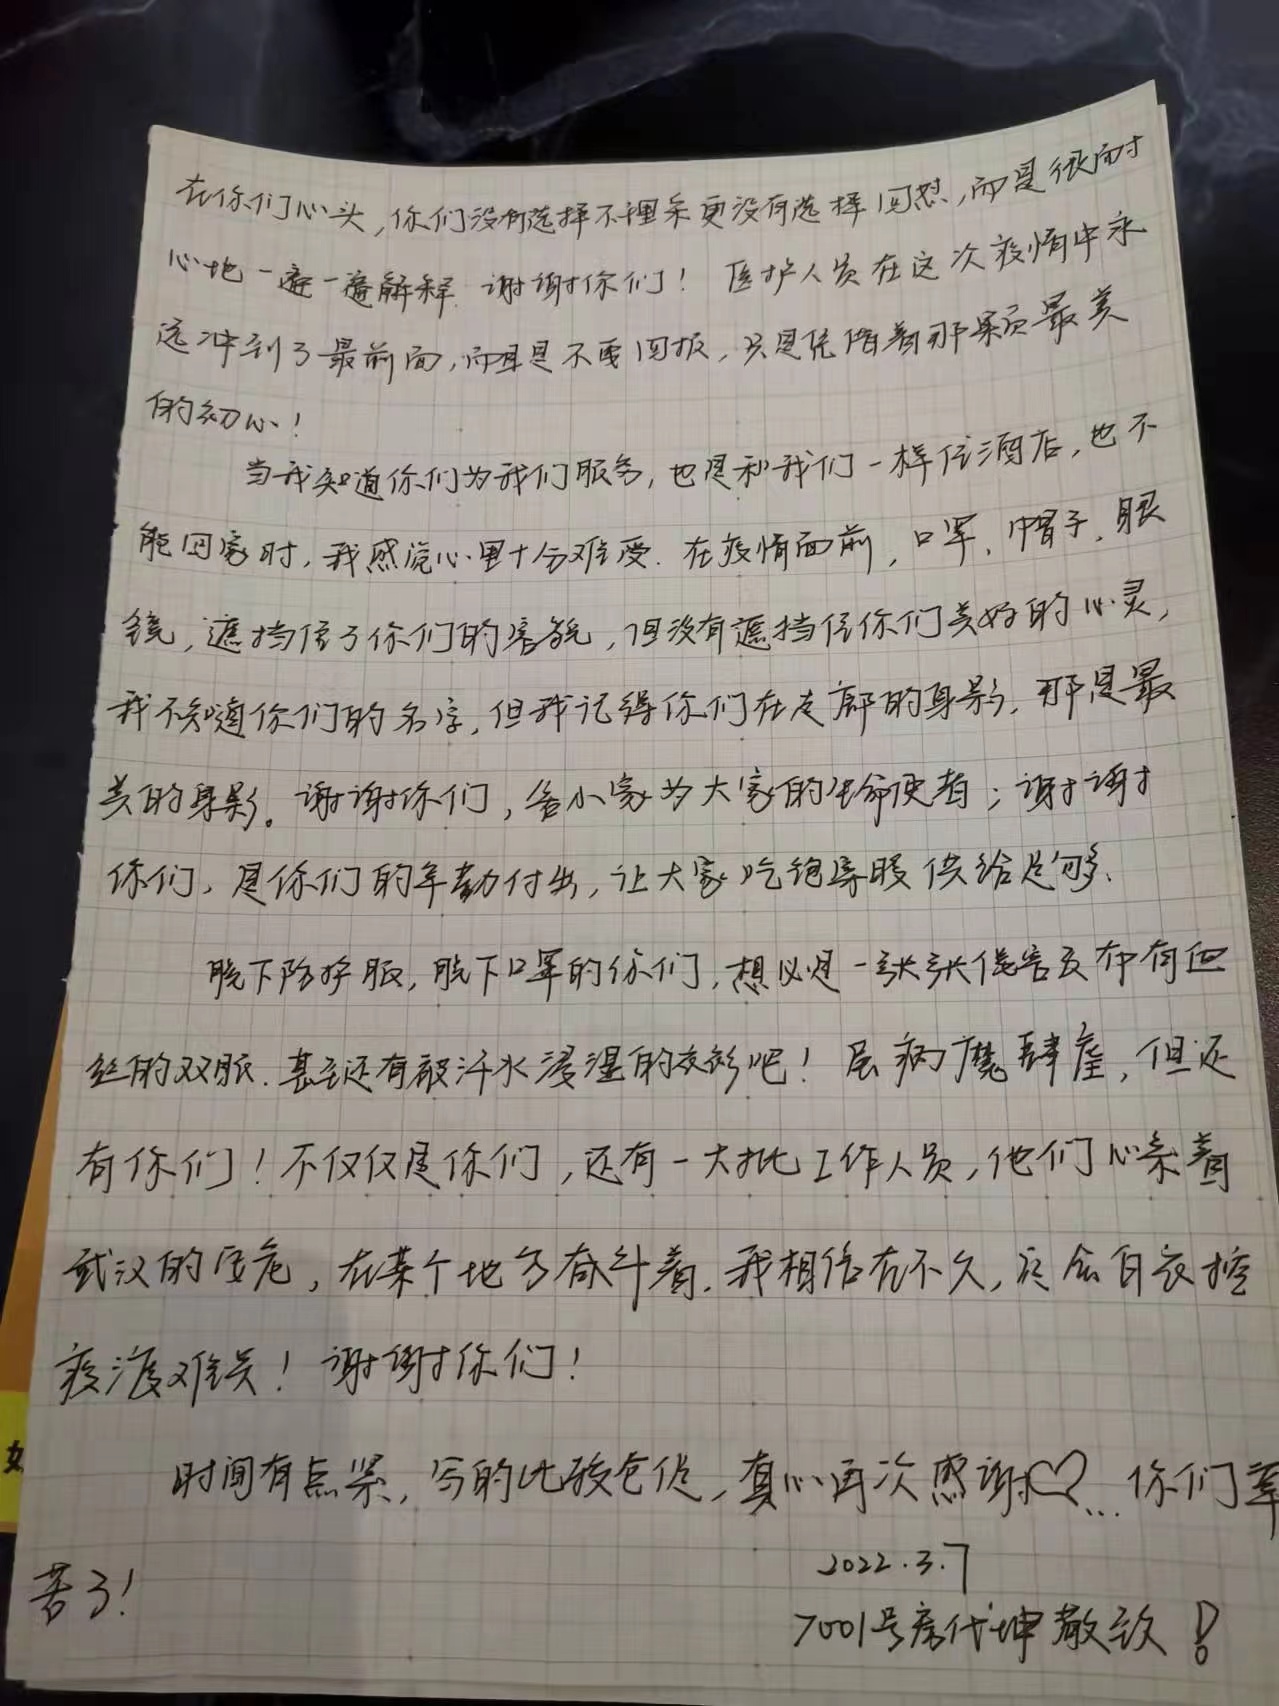 在你们心头，你们没有选择不理系更没有选择回怼，而是很耐
心地一遍一遍解释．谢谢你们！医护人员在这次疫情中永
远冲到了最前面，而且是不要回报，只是凭借着那颗最美
的初心！
当我知道你们为我们服务，也是和我们一样住酒店，也不
能回家时，我感觉心里十分难受．在疫情面前，口罩、帽子、眼
镜，遮挡住了你们的容貌，但没有遮挡住你们美好的心灵，
我不知道你们的名字，但我记得你们在走廊的身影，那是最
美的身影。谢谢你们，舍小家为大家的生命使者；谢谢
你们，是你们的辛勤付出，让大家吃饱穿暖供给足够．
脱下防护服，脱下口罩的你们，想必是一张张疲害及布有血
丝的双眼．甚至还有被汗水浸湿的衣衫吧！虽病魔肆虐，但还
有你们！不仅仅是你们，还有一大批工作人员，他们心系着
武汉的安危，在某个地方奋斗着．我相信在不久，定会白衣控
疫渡难关！谢谢你们！
时间有点紧，写的比较仓促，真心再次感谢♡...你们辛
苦了！
2022.3.7
7001号房代坤敬致！